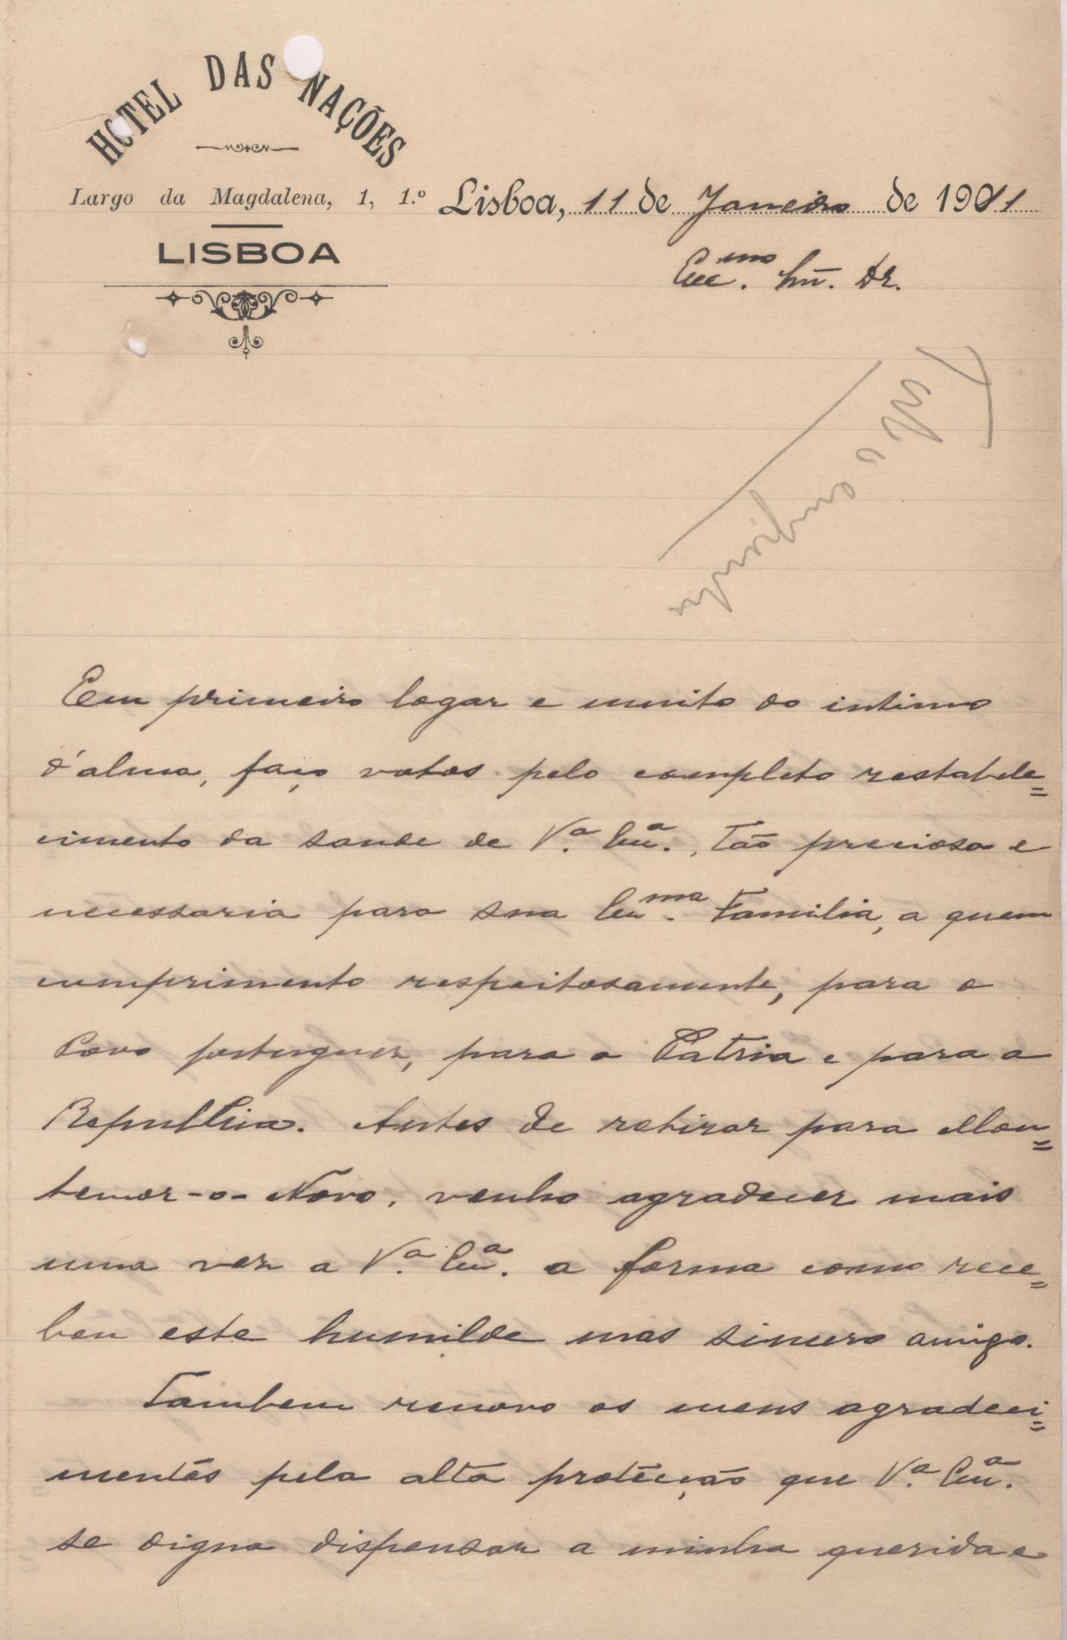 HOTEL DAS NAÇÕES
Largo da Magdalena, 1, 1.º
LISBOA
Lisboa, 11 de Janeiro de 1911
Exc.mo Sñr. Dr.
Em primeiro logar e muito do intimo
d'alma, faço votos pelo completo restabele=
cimento da saude de V.ª Exª., tão preciosa e
necessaria para sua Ex.ma Familia, a quem
cumprimento respeitosamente, para o
Povo portuguez, para a Patria e para a
Republica. Antes de retirar para Mon=
temor-o-Novo, venho agradecer mais
uma vez a V.ª Exª. a forma como rece=
beu este humilde mas sincero amigo.
Tambem renovo os meus agradeci=
mentos pela alta protecção que V.ª Exª.
se digna dispensar a minha querida e